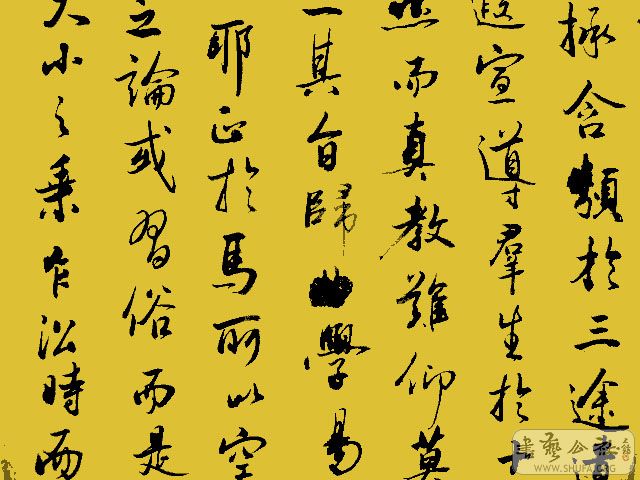 拯含類於三途
遐宣導羣生於十
然而真教難仰莫
一其旨歸學易
耶正於焉所以空
之論或習俗而是
大小之乘乍沿時而
WWW.SHUFA.ORG